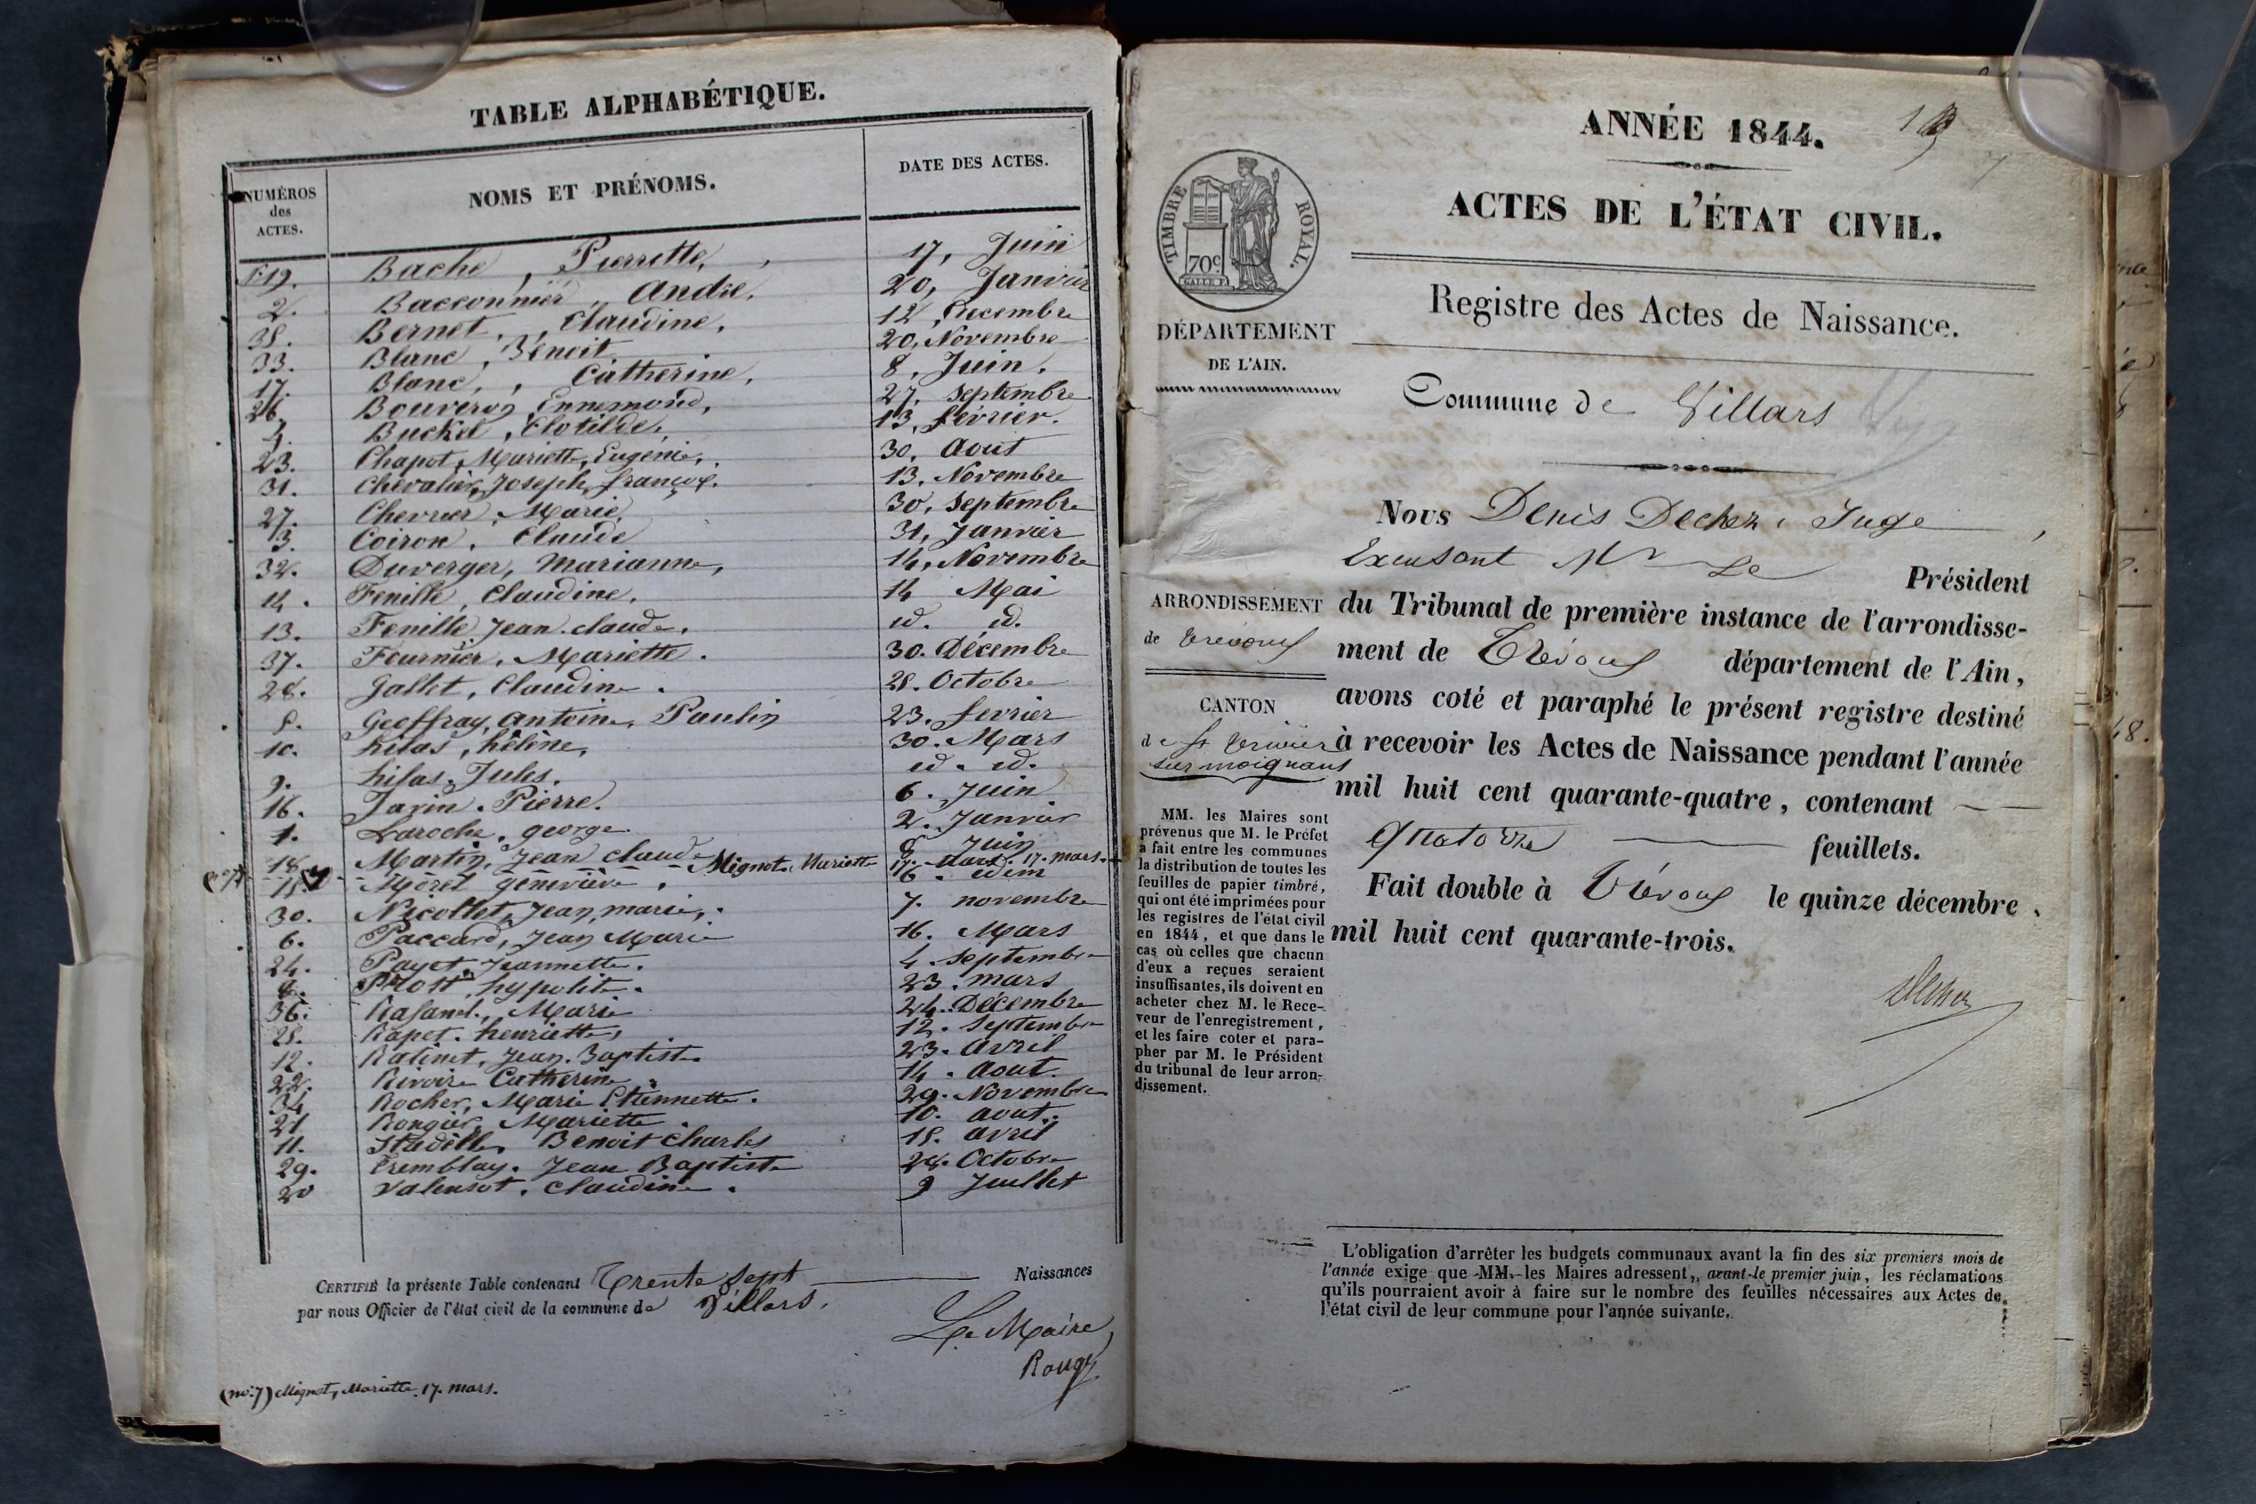 TABLE ALPHABÉTIQUE.
NUMÉROS des ACTES. NOMS ET PRÉNOMS. DATE DES ACTES.
19. Bache, Pierrette, 17, Juin
2. Bacconnier, André, 20, Janvier
35. Bernet, Claudine, 12, Decembre
33. Blanc, Bénoit, 20, Novembre
17. Blanc, Catherine, 8, Juin.
26. Bouveron, Ennemond, 27, Septembre
4. Buckel, Clotilde, 13, fevrier.
23. Chapot, Mariette, Eugénie, 30, Aout
31. Chevalier, Joseph, françois. 13, Novembre
27. Chevrier, Marie, 30, Septembre
3. Coiron, Claude 31, Janvier
32. Duverger, Marianne, 14, Novembre
14. Fenille, Claudine, 14 Mai
13. Fenille, Jean claude. id. id.
37. Fournier, Mariette. 30. Décembre
28. Gallet, Claudine. 28. Octobre
5. Geoffray, antoine, Paulin 23. fevrier
10. hilas, hélène, 30. Mars
9. hilas, Jules. id. id.
16. Javin. Pierre. 6. Juin
1. Laroche, george 2. Janvier
18. Martin, Jean claude 8 Juin
(no 7) Mignot. Mariette 17. mars.
15. Morel géneviève, 16. idem
30. Nicollet, Jean, marie, 7. novembre
6. Paccard, Jean Marie 16. Mars
24. Payet, Jeannette. 4. Septembre
8. Prost, hypolite. 23. mars
36. Rafanel, Marie 24. Décembre
25. Rapet. henriette, 12. Septembre
12. Ratinet, Jean. Baptiste. 23. avril
22. Rivoire Catherine. 14. aout.
34 Rocher, Marie Etiennette. 29. Novembre
21 Rongier, Mariette 10. aout.
11. Benoit Charles 15. avril
29. Tremblay. Jean Baptiste 28. Octobre
20 Valensot. Claudine. 9 Juillet
CERTIFIÉ la présente Table contenant Trente Sept Naissances
par nous Officier de l'état civil de la commune de Villars.
Le Maire,
Rougy
(no. 7) Mignot, Mariette. 17. mars.
ANNÉE 1844.
ACTES DE L'ÉTAT CIVIL.
TIMBRE ROYAL.
70c
Registre des Actes de Naissance.
DÉPARTEMENT
DE L'AIN.
Commune de Villars
Nous Denis Dechez, Juge,
Excusant Mr Le Président
du Tribunal de première instance de l'arrondisse-
ment de Trévoux département de l'Ain,
avons coté et paraphé le présent registre destiné
à recevoir les Actes de Naissance pendant l'année
mil huit cent quarante-quatre, contenant
quatorze feuillets.
Fait double à Trévoux le quinze décembre
mil huit cent quarante-trois.
Dechez
ARRONDISSEMENT
de trevoux
CANTON
de St trivier
sur moignans
MM. les Maires sont
prévenus que M. le Préfet
a fait entre les communes
la distribution de toutes les
feuilles de papier timbré,
qui ont été imprimées pour
les registres de l'état civil
en 1844, et que dans le
cas où celles que chacun
d'eux a reçues seraient
insuffisantes, ils doivent en
acheter chez M. le Rece-
veur de l'enregistrement,
et les faire coter et para-
pher par M. le Président
du tribunal de leur arron-
dissement.
L'obligation d'arrêter les budgets communaux avant la fin des six premiers mois de
l'année exige que MM. les Maires adressent, avant le premier juin, les réclamations
qu'ils pourraient avoir à faire sur le nombre des feuilles nécessaires aux Actes de
l'état civil de leur commune pour l'année suivante.